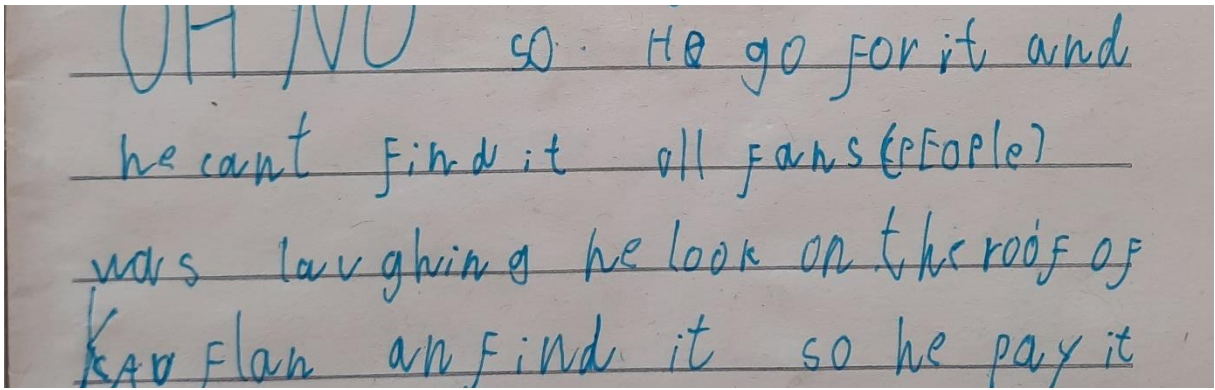 OH NO so. He go For it and
he cant Find it all Fans (PEOPle)
was laughing he look on the roof of
KAUFlan an Find it so he pay it